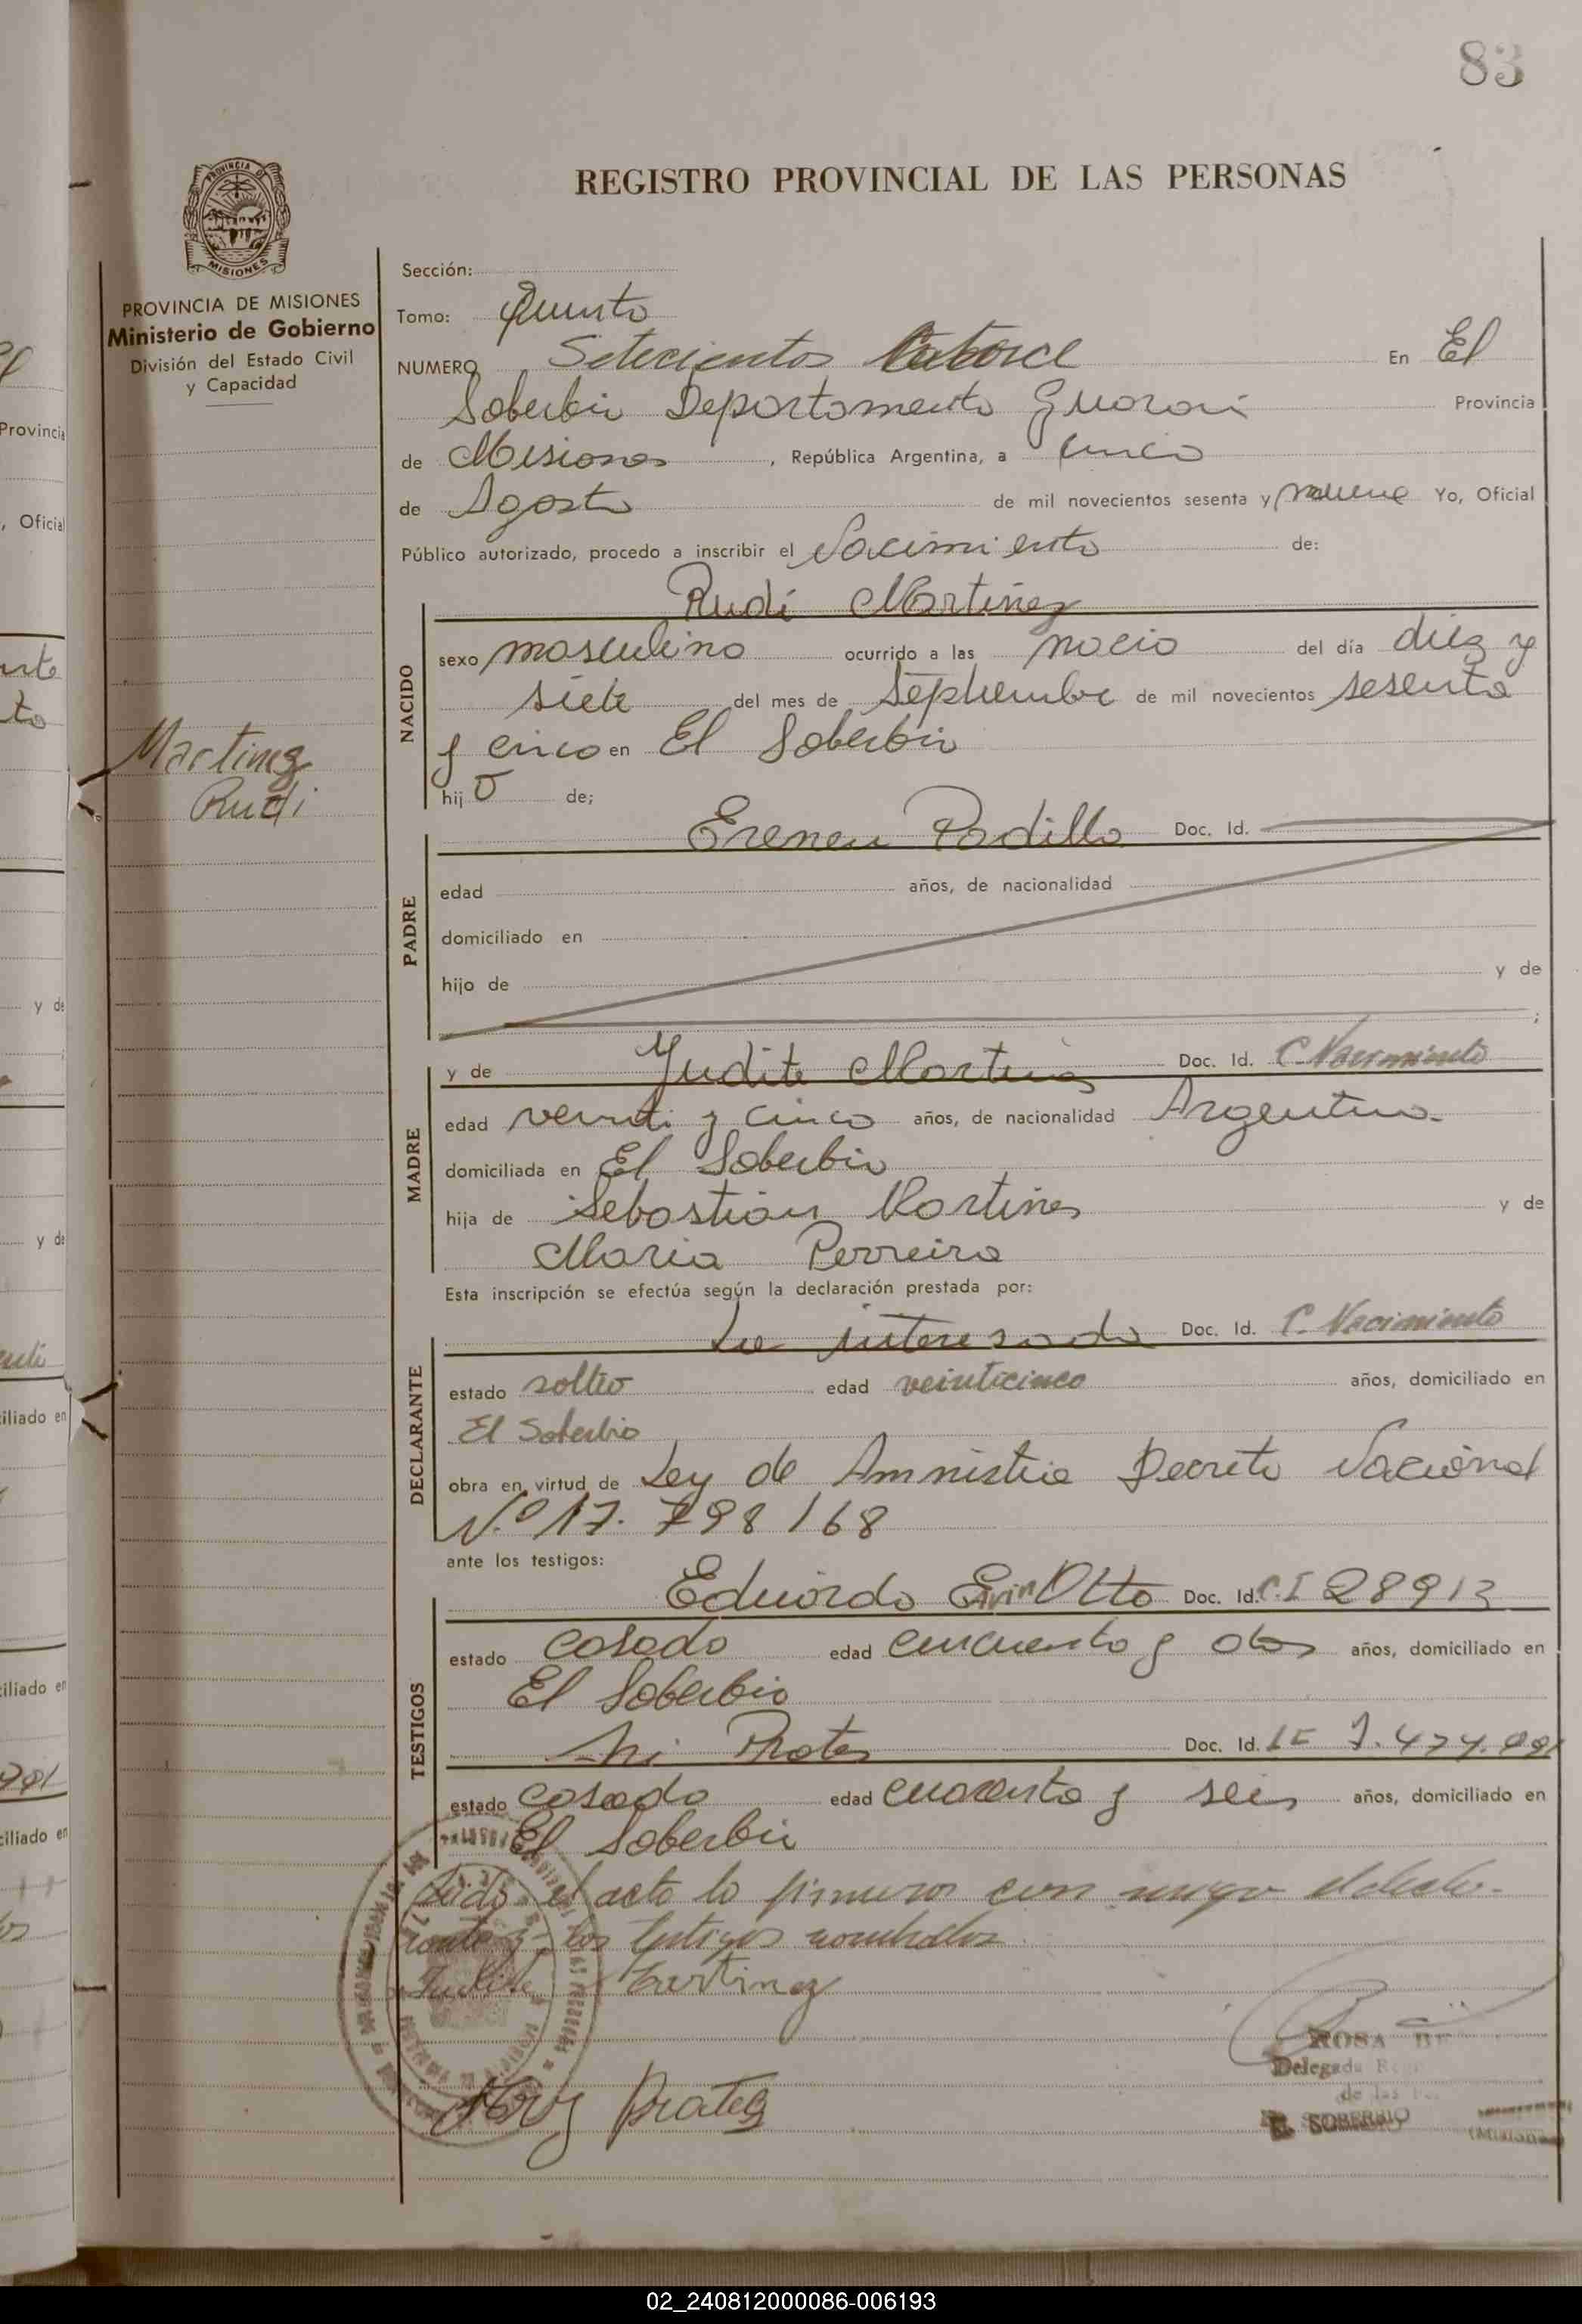 83
REGISTRO PROVINCIAL DE LAS PERSONAS
PROVINCIA DE MISIONES
MISIONES
PROVINCIA DE MISIONES
Ministerio de Gobierno
División del Estado Civil
y Capacidad
Martinez
Rudi
Sección:
Tomo: Quinto
NUMERO Setecientos Catorce En El
Soberbio Departamento Guarani Provincia
de Misiones, República Argentina, a cinco
de Agosto de mil novecientos sesenta y nueve Yo, Oficial
Público autorizado, procedo a inscribir el Nacimiento de:
Rudi Martinez
NACIDO
sexo masculino ocurrido a las nacio del día diez y
siete del mes de Septiembre de mil novecientos sesenta
y cinco en El Soberbio
hijo de;
PADRE
Ereneu Padilla Doc. Id.
edad años, de nacionalidad
domiciliado en
hijo de y de
;
MADRE
y de Judite Martines Doc. Id. C. Nacimiento
edad veinti y cinco años, de nacionalidad Argentina
domiciliada en El Soberbio
hija de Sebastian Martines y de
Maria Perreira
Esta inscripción se efectúa según la declaración prestada por:
DECLARANTE
La interesada Doc. Id. C. Nacimiento
estado edad veinticinco años, domiciliado en
El Soberbio
obra en virtud de Ley de Amnistia Decreto Nacional
N.º 17.798/68
ante los testigos:
TESTIGOS
Eduardo Ervin Otto Doc. Id. C.I 28913
estado casado edad cincuenta y años, domiciliado en
El Soberbio
Prates Doc. Id. LE 7.474.991
estado casado edad cuarenta y seis años, domiciliado en
El Soberbio
el acto lo conmigo el decla-
rante y los testigos nombrados
Judite Martinez
Prates
ROSA BE
Delegada
de las
EL SOBERBIO
(Misiones)
Provincia
, Oficial
y de
y de
ciliado en
ciliado en
ciliado en
02_240812000086-006193